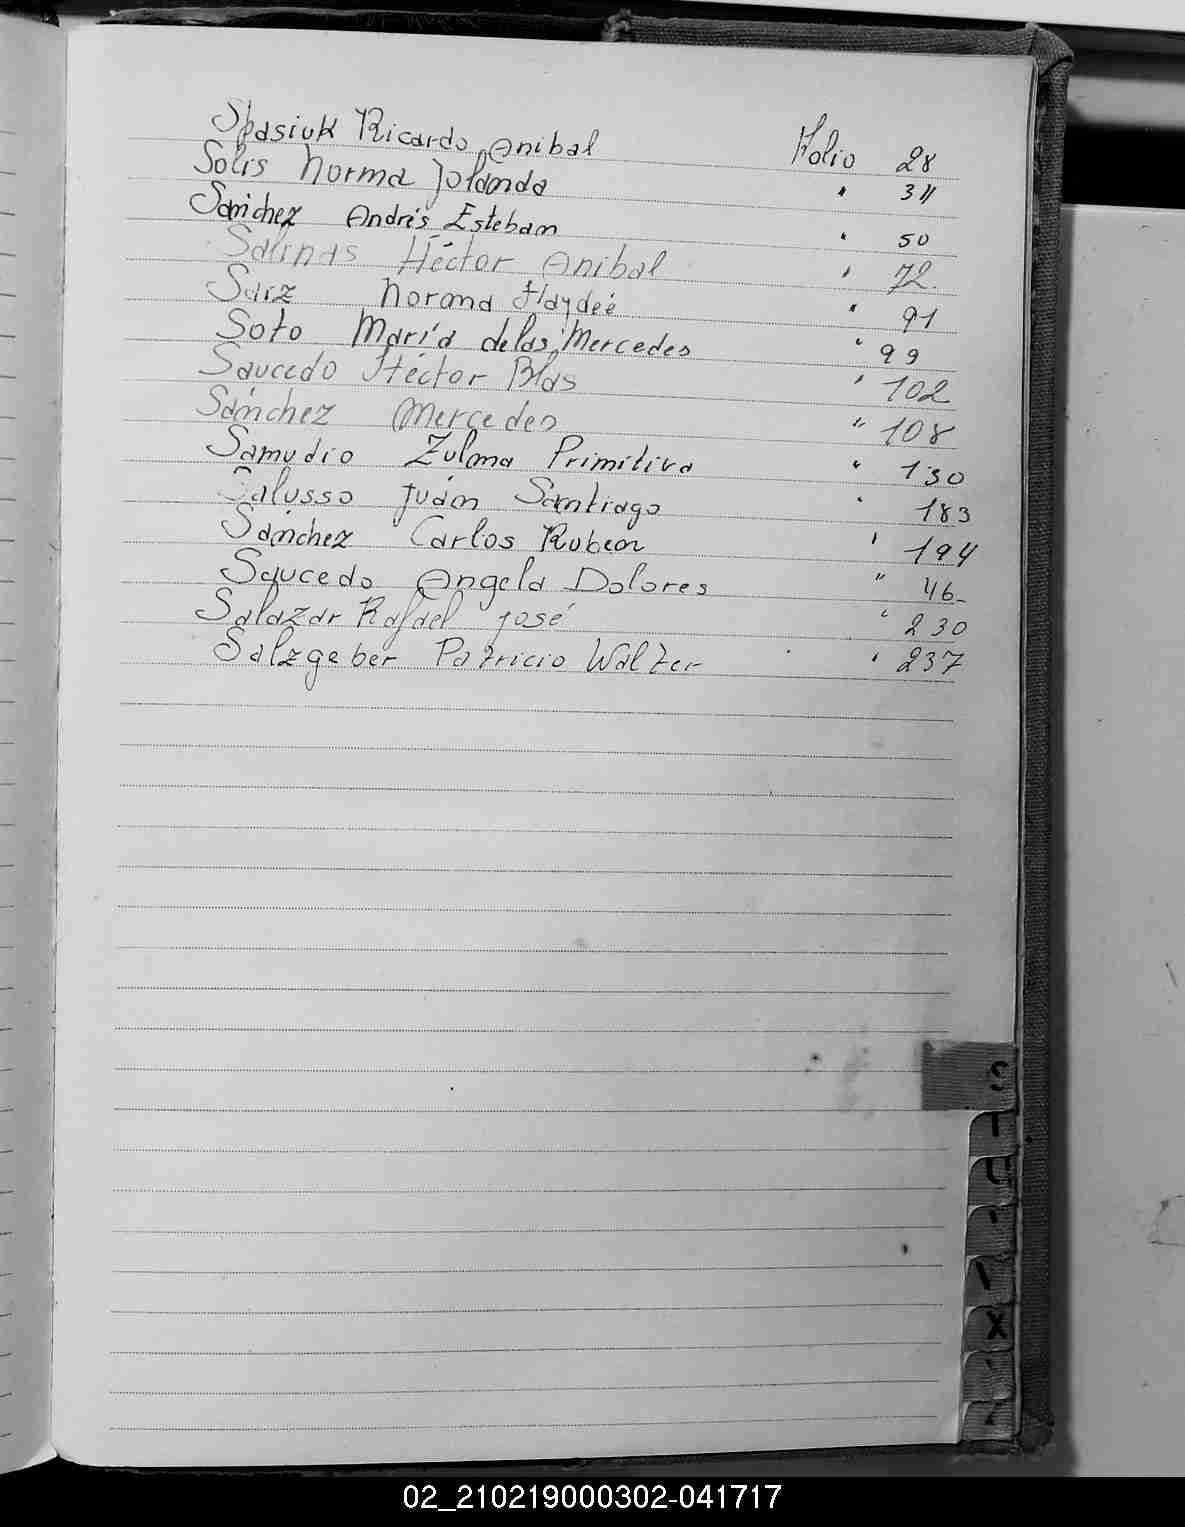 Spasiuk Ricardo Anibal Folio 28
Solis Norma Jolanda " 34
Sánchez Andrés Esteban " 50
Salinas Héctor Anibal " 72.
Saiz Norma Haydeé " 91
Soto María de las Mercedes " 99
Saucedo Héctor Blas " 102
Sánchez Mercedes " 108
Samudio Zulma Primitiva " 130
Salusso Juán Santiago " 183
Sánchez Carlos Ruben " 194
Saucedo Angela Dolores " 46-
Salazar Rafael José " 230
Salzgeber Patricio Walter " 237
S
T
U
X
02_210219000302-041717